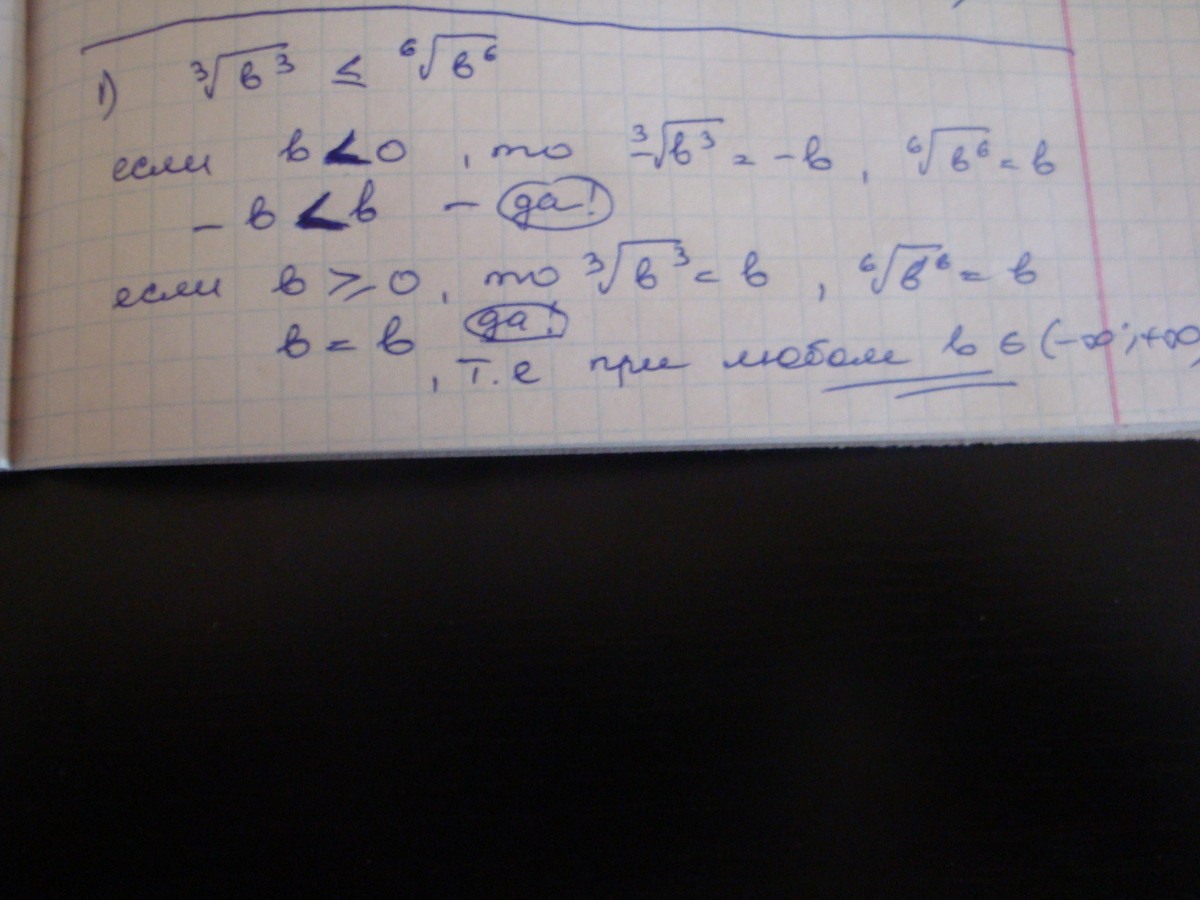 1) ³√b³ ≤ ⁶√b⁶
если b < 0, то ³√b³ = -b, ⁶√b⁶ = b
- b < b - да!
если b ⩾ 0, то ³√b³ = b, ⁶√b⁶ = b
b = b да!
, т.е при любом b ∈ (-∞; +∞)